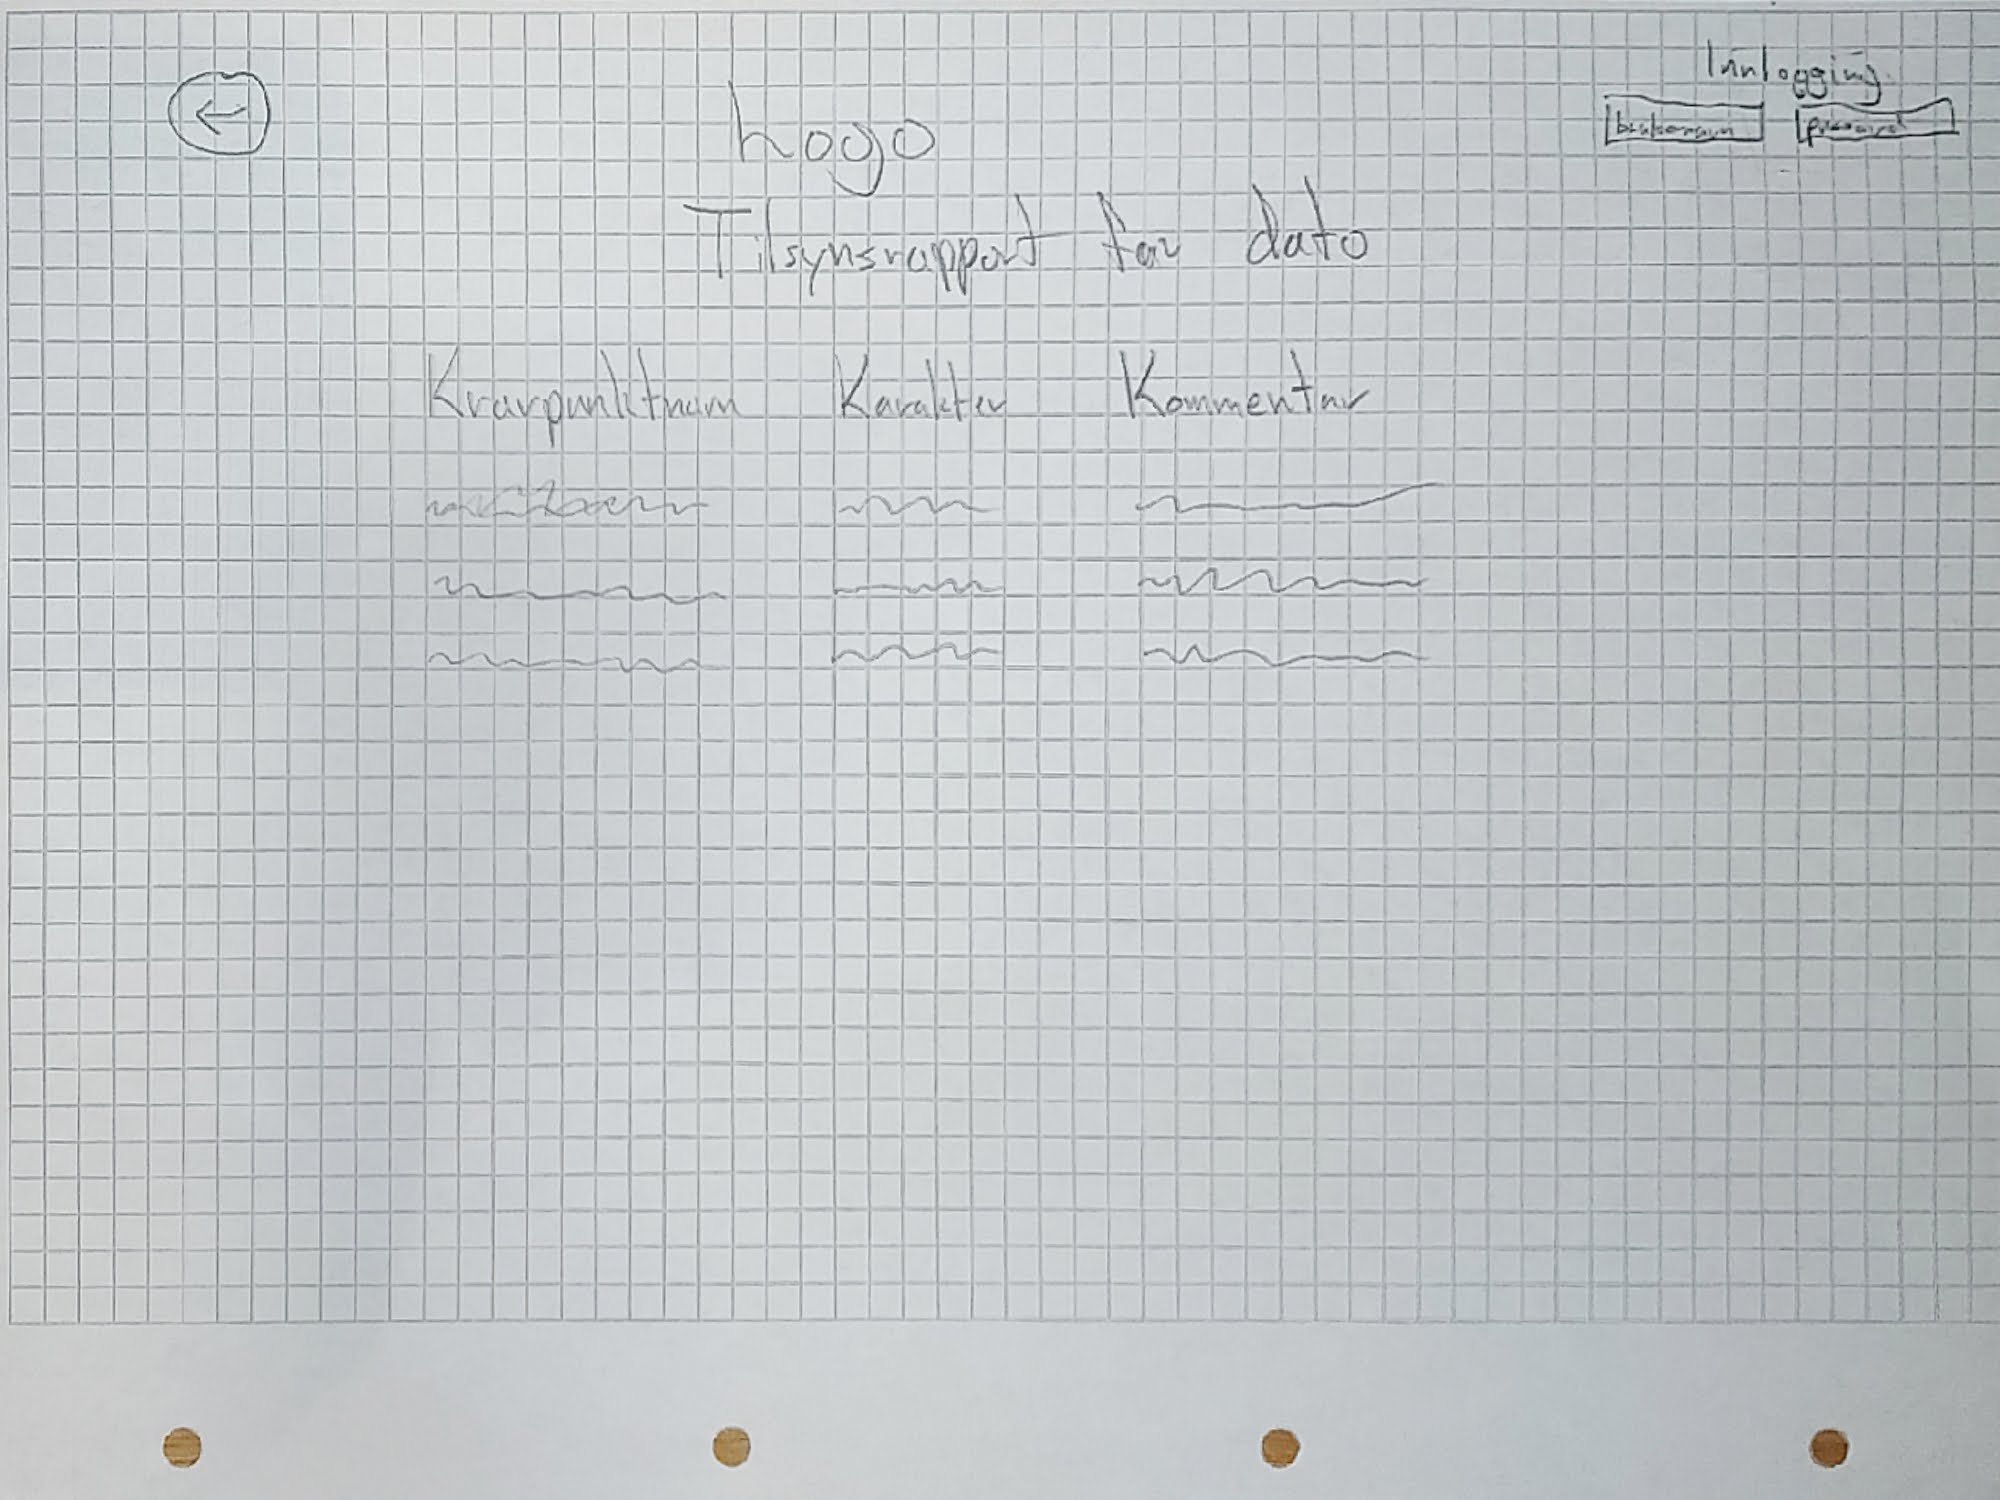 Innlogging
brukernavn passord
Logo
Tilsynsrapport for dato
Kravpunktnavn Karakter Kommentar